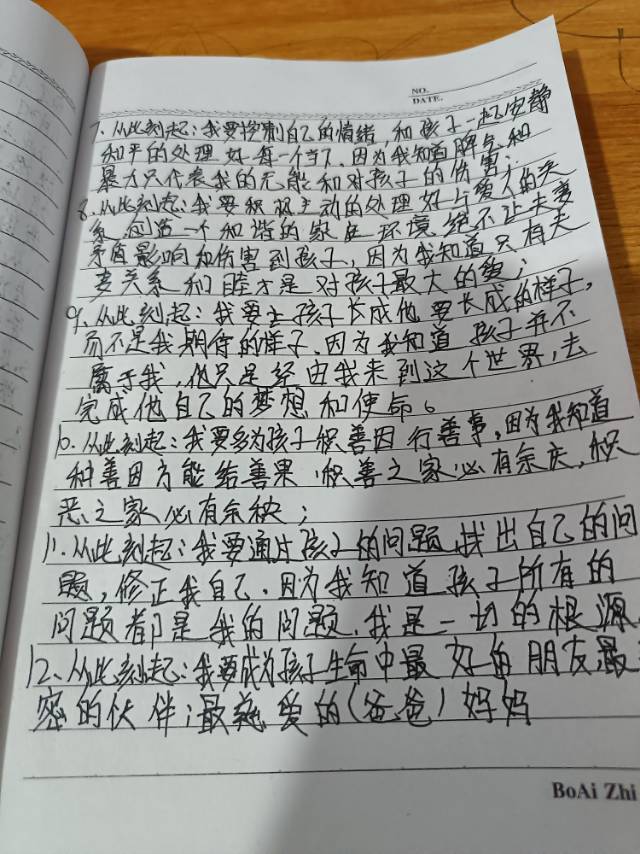 NO.
DATE.
7、从此刻起:我要控制自己的情绪,和孩子一起安静
和平的处理好每一个当下,因为我知道脾气和
暴力只代表我的无能和对孩子的伤害;
8、从此刻起:我要积极主动的处理好与爱人的关
系,创造一个和谐的家庭环境,绝不让夫妻
矛盾影响和伤害到孩子,因为我知道只有夫
妻关系和睦才是对孩子最大的爱;
9、从此刻起:我要让孩子长成他要长成的样子,
而不是我期待的样子,因为我知道孩子并不
属于我,他只是经由我来到这个世界,去
完成他自己的梦想和使命。
10、从此刻起:我要多为孩子积善因行善事,因为我知道
种善因方能结善果,积善之家必有余庆,积
恶之家必有余殃;
11、从此刻起:我要通过孩子的问题,找出自己的问
题,修正我自己,因为我知道孩子所有的
问题都是我的问题,我是一切的根源
12、从此刻起:我要成为孩子生命中最好的朋友最
密的伙伴;最 爱的(爸爸)妈妈
BoAi Zhi